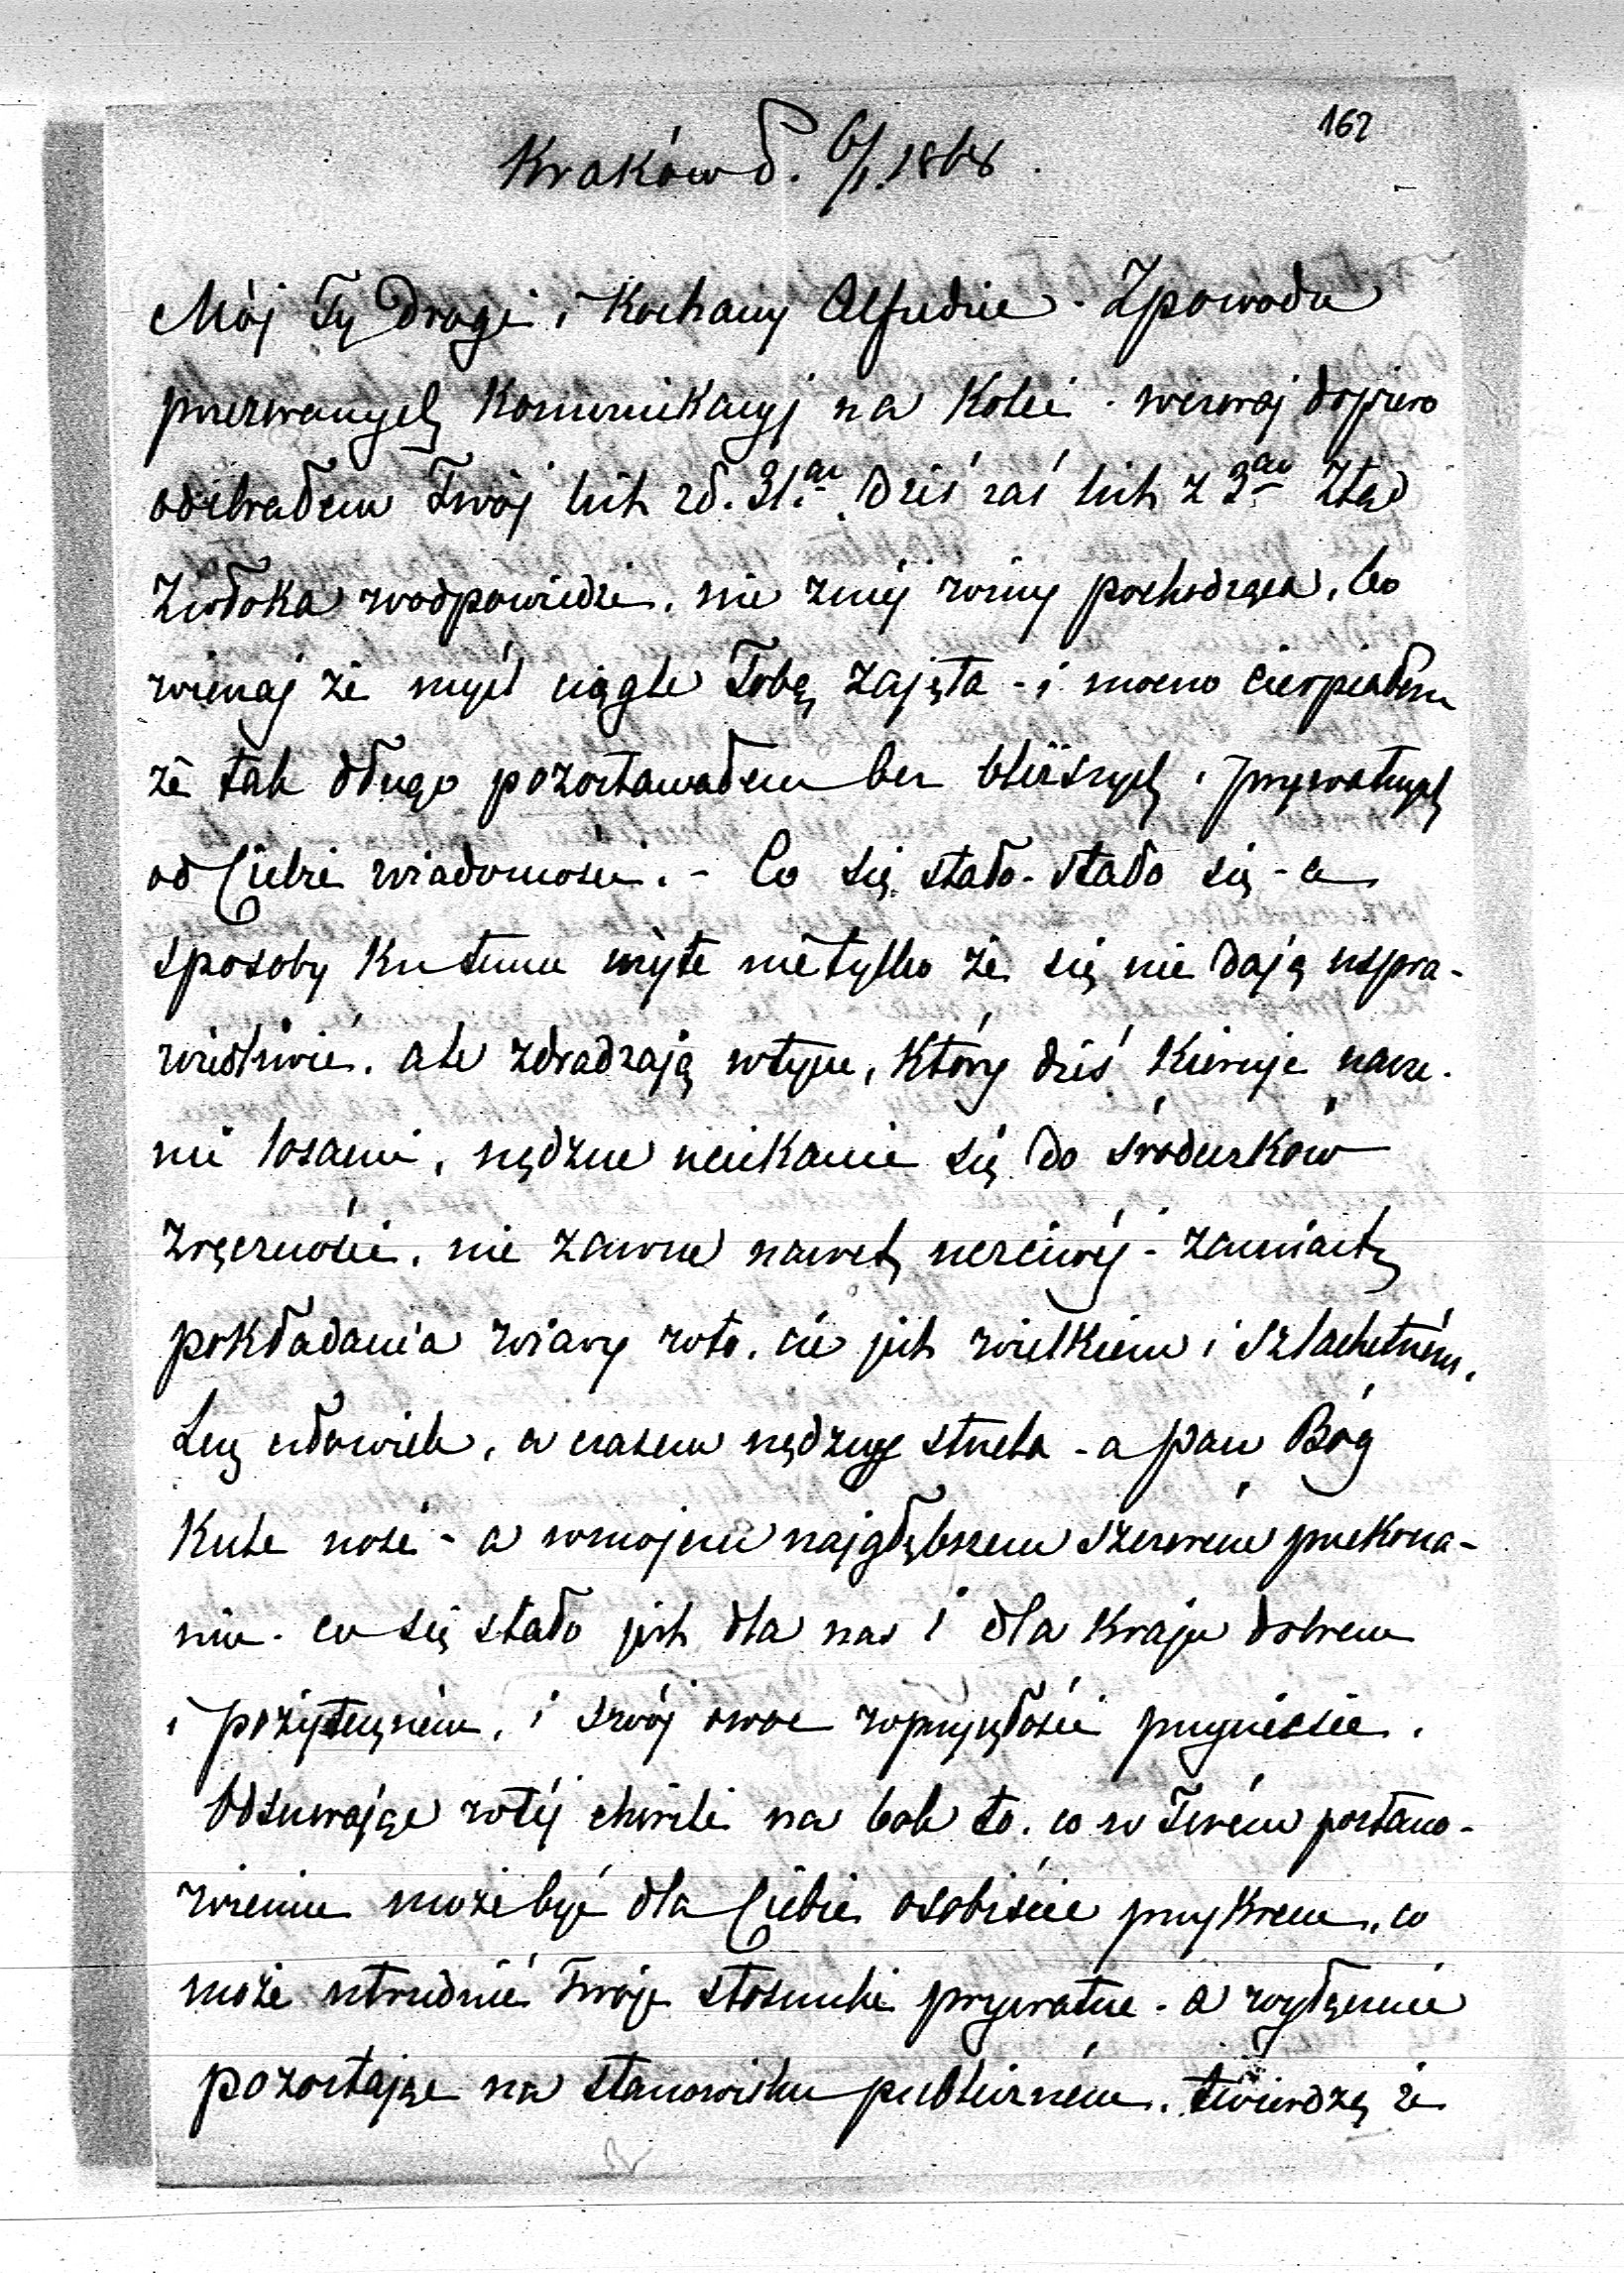 162
Kraków d. 6/1. 1868.
Mój Ty Drogi i Kochany Alfredzie - Zpowodu
przerwanych Komunikacyj na Kolei - wczoraj dopiero
odebrałem Twój list zd. 31.go Dziś zaś list z 3go Ztąd
Zwłoka wodpowiedzi, nie zmej winy pochodząca, bo
wierzaj że myśl ciągle Tobą zajęta - i mocno cierpiałem
że tak długo pozostawałem bez bliższych i prywatnych
od Ciebie wiadomości. - Co się stało - stało się - a
sposoby Ku temu użyte nietylko że się nie dają uspra-
wiedliwić, ale zdradzają wtym, Który dziś Kieruje nasze-
mi losami, nędzne uciekanie się do środeczków
Zręczności, nie zawsze nawet uczciwej - zamiast
pokładania wiary wto, co jest wielkiem i szlachetném.
Lecz człowiek, a czasem nędzny strzela - a pan Bóg
Kule nosi - a wmojem najgłębszem szczerém przekona-
niu - co się stało jest dla nas i dla Kraju dobrem
i pożyteczném, i swój owoc wprzyszłości przyniesie.
Odsuwając wtéj chwili na bok to, co w Twém postano-
wieniu może być dla Ciebie osobiście przykrem, co
może utrudnić Twoje stosunki prywatne - a wyłącznie
pozostając na stanowisku publiczném, twierdzę że